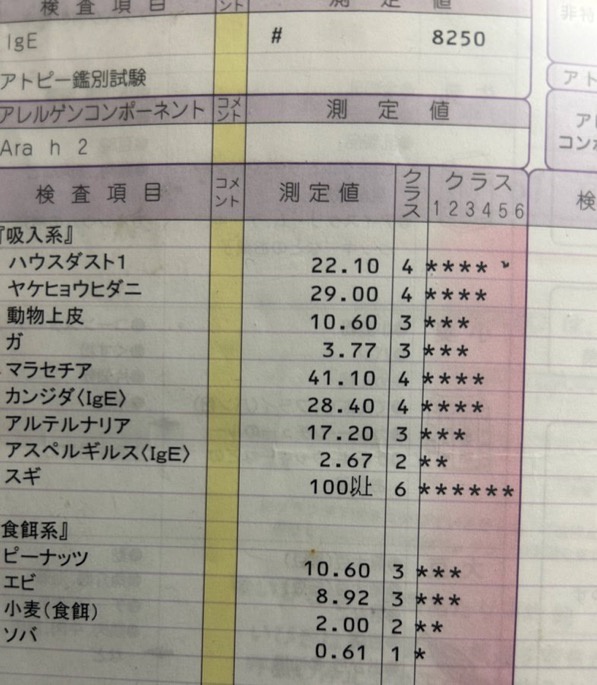 検査項目 コメント 測定値
IgE # 8250
アトピー鑑別試験
アレルゲンコンポーネント コメント 測定値
Ara h 2
検査項目 コメント 測定値 クラス クラス 1 2 3 4 5 6
『吸入系』
ハウスダスト1 22.10 4 ****
ヤケヒョウヒダニ 29.00 4 ****
動物上皮 10.60 3 ***
ガ 3.77 3 ***
マラセチア 41.10 4 ****
カンジダ〈IgE〉 28.40 4 ****
アルテルナリア 17.20 3 ***
アスペルギルス〈IgE〉 2.67 2 **
スギ 100以上 6 ******
食餌系』
ピーナッツ 10.60 3 ***
エビ 8.92 3 ***
小麦(食餌) 2.00 2 **
ソバ 0.61 1 *
非特
アト
アレ
コンポ
検